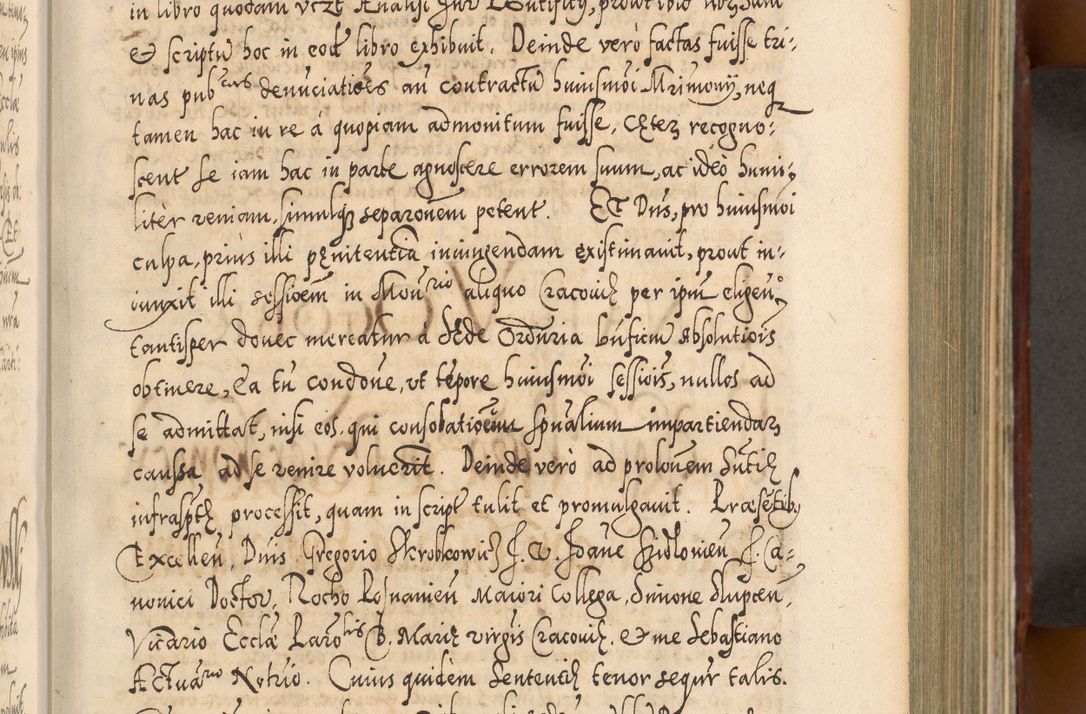 in libro quodam
& scriptũ hoc in eod̃ libro exhibuit. Deinde verò factas fuisse tri-
nas pub^cas denũciatiões an̄ contractũ huiusmõi M̃rimonÿ, neq
tamen hac in re á quopiam admonitum fuisse, Cęteᷓ recogno-
scent se iam hac in parte agnoscere errorem suum, ac ideò humi-
litèr veniam, simulqꝫ separõnem petent. Et Dñs, pro huiusmõi
culpa, priùs illi pęnitentiã iniungendam existimauit, prout in-
iunxit illi sessiõem in Moñ^rio aliquo Cracouię per ipm̃ eligeñ
tantisper donec mereatur á Sede Ordñria bñficiũ Absolutiõis
obtinere, Ea tñ conditiõe, vt tẽpore huiusmõi sessiõis, nullos ad
se admittat, nisi eos, qui consolatiõem spũalium impartiendaᷓ
caussa ad se venire voluerĩt. Deinde verò ad prolõnem Sñtię
infrasp̃tę processit, quam in script̃ tulit et promulgauit. Præsẽtibꝫ
Excelleñ, Dñis Gregorio Skrobkowicz I. V. Ioãne Szidlovieñ I. Ca-
nonici Doctor, Rocho Posnanieñ Maiori Collega, Simone Slupceñ,
Vicãrio Ecclæ Paro^lis B. Marię virgis Cracouię, & me Sebastiano
Actuã^rio Notrio. Cuius quidèm Sententię tenor sequr̃ talis.